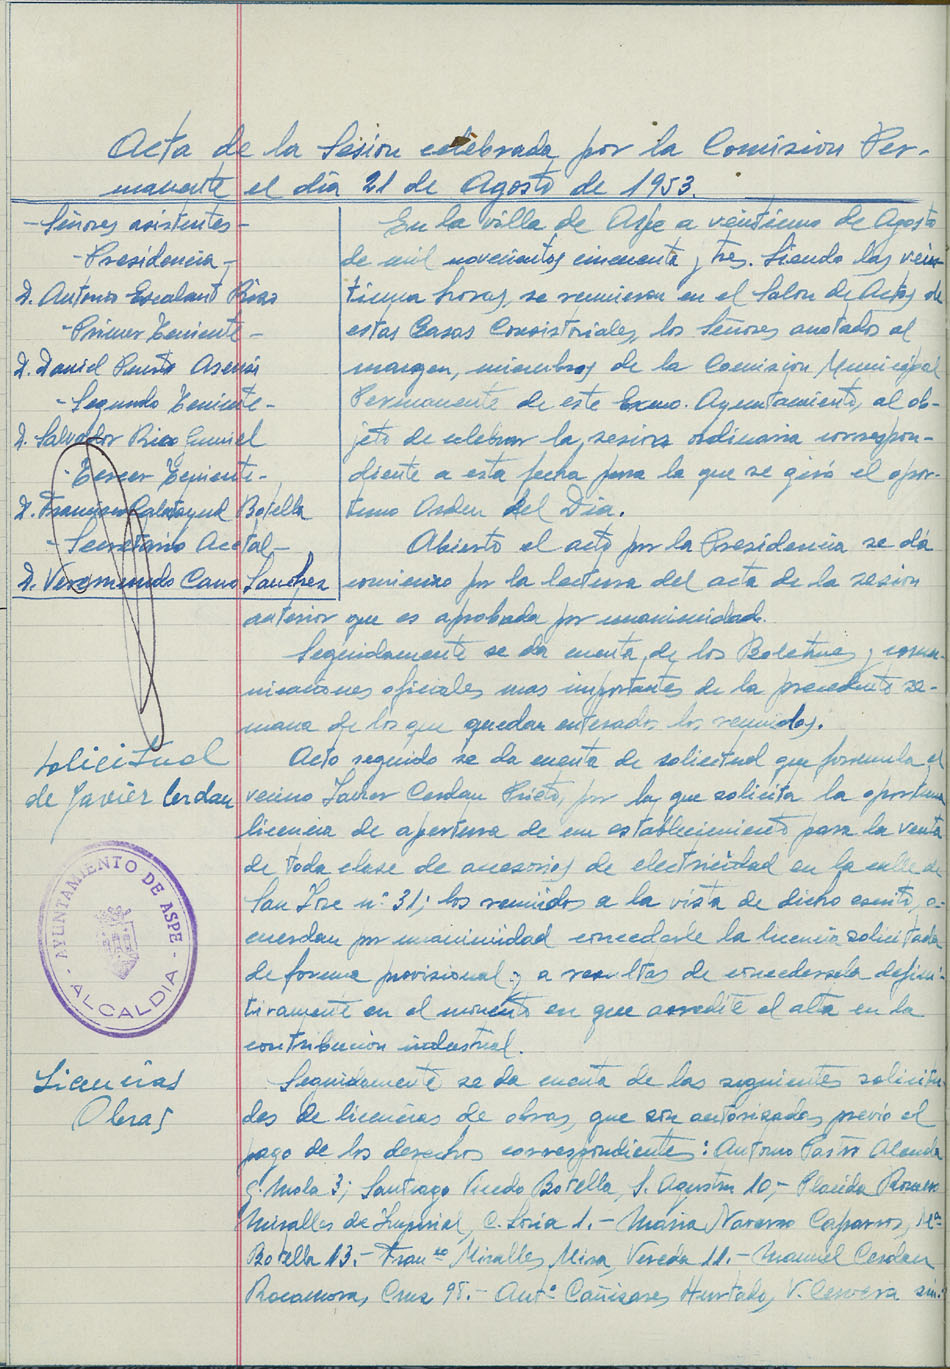 Acta de la Sesion celebrada por la Comision Per-
manente el día 21 de Agosto de 1953.
- Señores asistentes -
- Presidencia -
D. Antonio Escalant Rizo
- Primer Teniente -
D. Daniel Puerto Asensi
- Segundo Teniente -
D. Salvador Rico
- Tercer Teniente -
D. Francisco Calatayud Botella
- Secretario Acctal -
D. Veremundo Cano Sanchez
En la villa de Aspe a veintiuno de Agosto
de mil novecientos cincuenta y tres. Siendo las vein-
tiuna horas, se reunieron en el Salon de Actos de
estas Casas Consistoriales, los Señores anotados al
margen, miembros de la Comision Municipal
Permanente de este Excmo. Ayuntamiento, al ob-
jeto de celebrar la sesion ordinaria correspon-
diente a esta fecha para la que se giró el opor-
tuno Orden del Dia.
Abierto el acto por la Presidencia se dá
comienzo por la lectura del acta de la sesion
anterior que es aprobada por unanimidad.
Seguidamente se da cuenta de los Boletines y comu-
nicaciones oficiales mas importantes de la precedente se-
mana de los que quedan enterados los reunidos.
Solicitud
de Javier Cerdan
Acto seguido se da cuenta de solicitud que formula el
vecino Javier Cerdan Prieto, por la que solicita la oportuna
licencia de apertura de un establecimiento para la venta
de toda clase de accesorios de electricidad en la calle de
San Jose nº 31; los reunidos a la vista de dicho escrito, a-
cuerdan por unanimidad concederle la licencia solicitada
de forma provisional y a resultas de concedersela defini-
tivamente en el momento en que acredite el alta en la
contribucion industrial.
- AYUNTAMIENTO DE ASPE -
ALCALDIA
Licencias
Obras
Seguidamente se da cuenta de las siguientes solicitu-
des de licencias de obras, que son autorizadas previo el
pago de los derechos correspondientes: Antonio Pastor Alenda
G. Mola 3; Santiago Botella, S. Agustin 10,- Placida
Miralles de Imperial, C. Soria 1.- Maria Navarro Caparros, Mª
Botella 13.- Franco Miralles Mira, Vereda 11.- Manuel Cerdan
Rocamora, Cruz 95.- Antº Cañizares Hurtado, V. Cervera